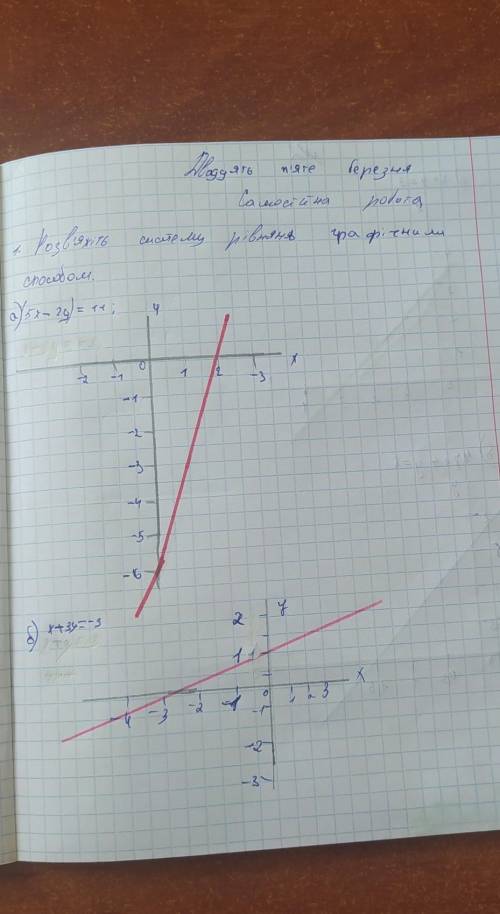 Двадцять п'яте березня
Самостійна робота
1. Розв'яжіть систему рівнянь графічним
способом.
а) 5x-2y = 11;
y
-2 -1 0 1 2 -3 x
-1
-2
-3
-4
-5
-6
б) x+3y=-3
2 y
1 1
-4 -3 -2 -1 0 1 2 3 x
-1
-2
-3